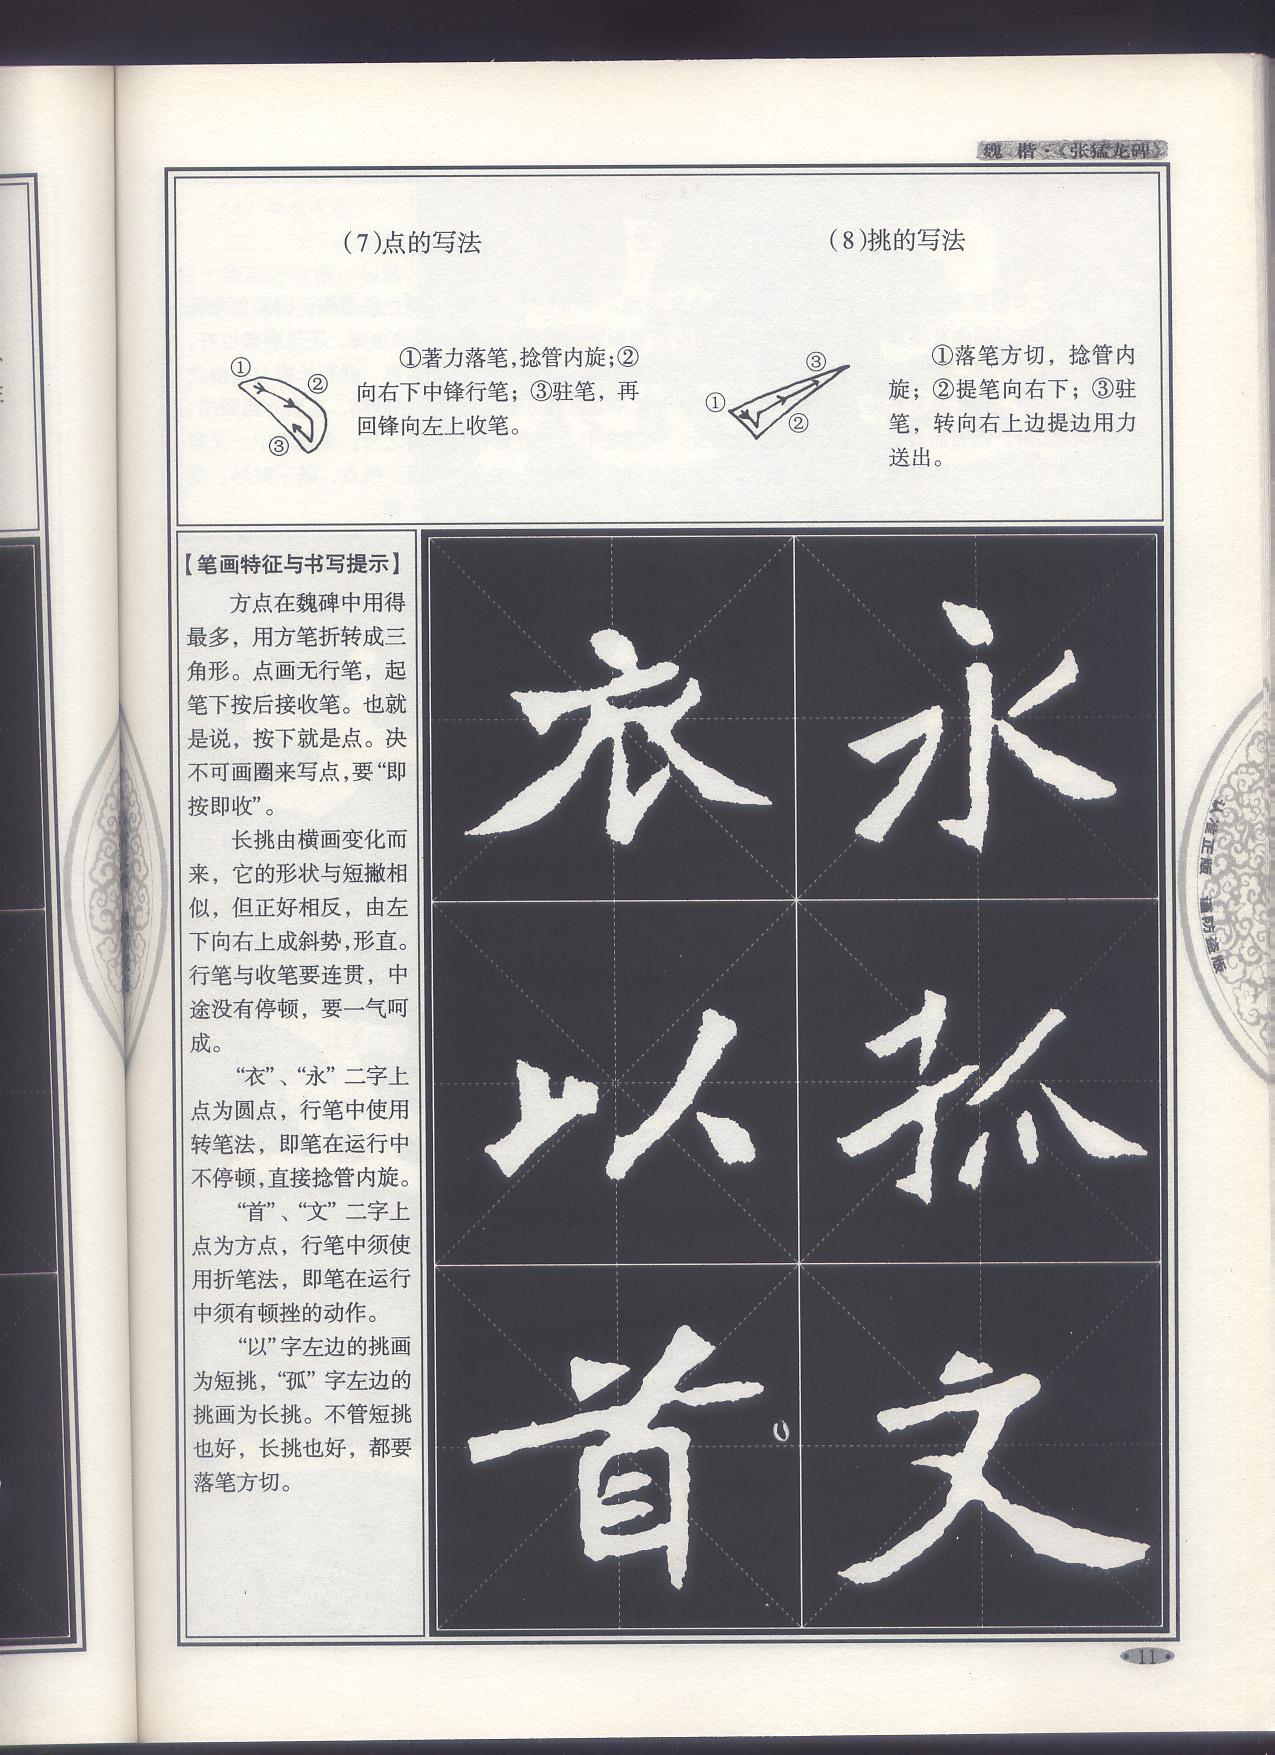 魏 楷·《张猛龙碑》
(7)点的写法
①
②
③
①著力落笔,捻管内旋;②
向右下中锋行笔；③驻笔，再
回锋向左上收笔。
(8)挑的写法
①
②
③
①落笔方切，捻管内
旋；②提笔向右下；③驻
笔，转向右上边提边用力
送出。
【笔画特征与书写提示】
方点在魏碑中用得
最多，用方笔折转成三
角形。点画无行笔，起
笔下按后接收笔。也就
是说，按下就是点。决
不可画圈来写点,要“即
按即收”。
长挑由横画变化而
来，它的形状与短撇相
似，但正好相反，由左
下向右上成斜势,形直。
行笔与收笔要连贯，中
途没有停顿，要一气呵
成。
“衣”、“永”二字上
点为圆点，行笔中使用
转笔法，即笔在运行中
不停顿,直接捻管内旋。
“首”、“文”二字上
点为方点，行笔中须使
用折笔法，即笔在运行
中须有顿挫的动作。
“以”字左边的挑画
为短挑，“孤”字左边的
挑画为长挑。不管短挑
也好，长挑也好，都要
落笔方切。
衣 永
以 孤
首 文
认准正版 谨防盗版
11